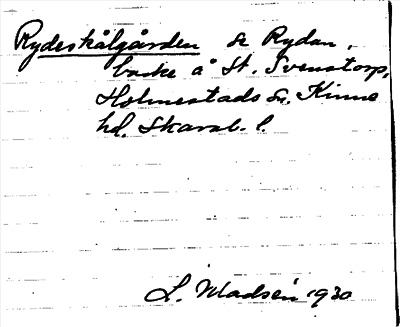 Rydeskålgården se Rydan,
backe å St. Svenstorp,
Holmestads sn. Kinne
hd. Skarab. l.
L. Madsén 1930